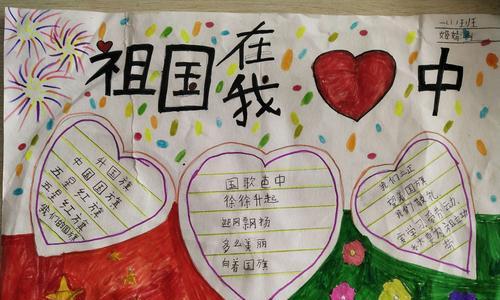 祖国在我中
一(1)班
升国旗
中国国旗
五星红旗
五星红旗
我们的国旗
国歌声中
徐徐升起
迎风飘扬
多么美丽
向着国旗
我们立正
望着国旗
我们敬礼